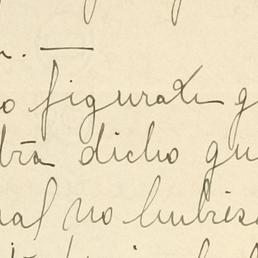 o figurate q
bra dicho qu
ual no hubies